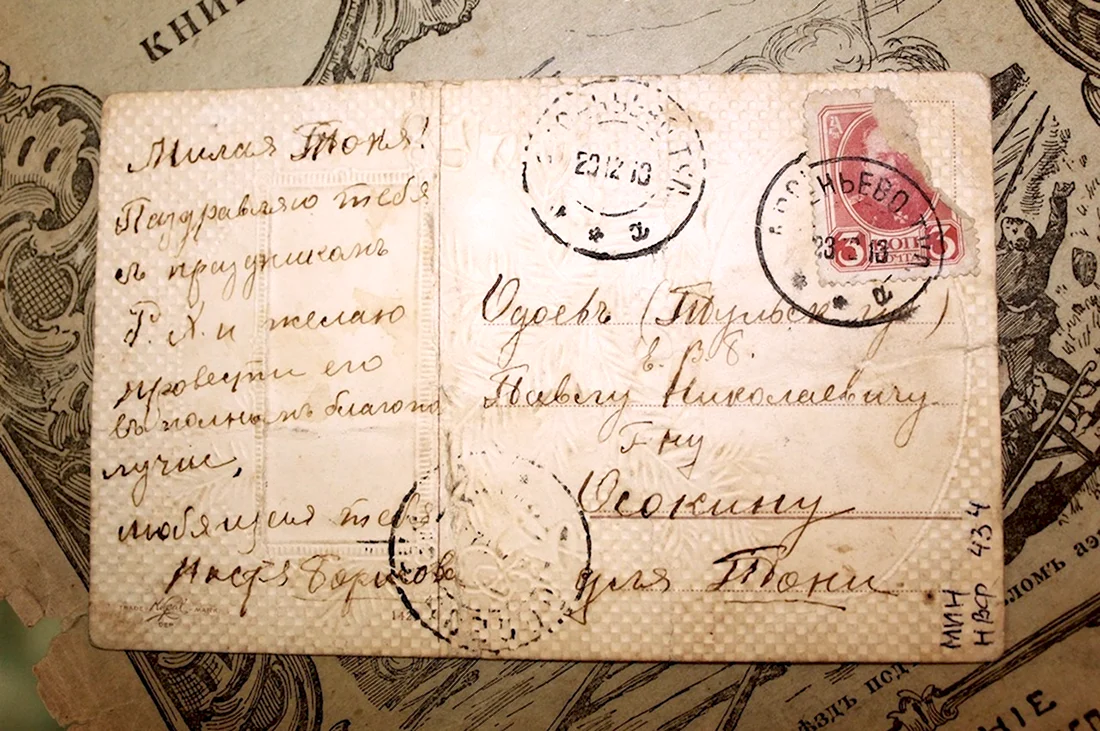 КНИ
Милая Тоня!
Паздравляю тебя
съ праздникомъ
Р. Х. и желаю
провести его
въ полномъ благопо
лучии,
любящая тебя
Настя Борисова
23 12 13
АРСЕНЬЕВО ТУЛ
23 13
3 КОП 3
ПОЧТА
Одоевъ (Тульск. губ)
Е. В. Б.
Павлу Николаевичу
Г-ну
Осокину
для Тони
МИН
НВФ 434
TRADE MARK
142
ЛОМЪ
ѢЗДЪ ПОД
НІЕ